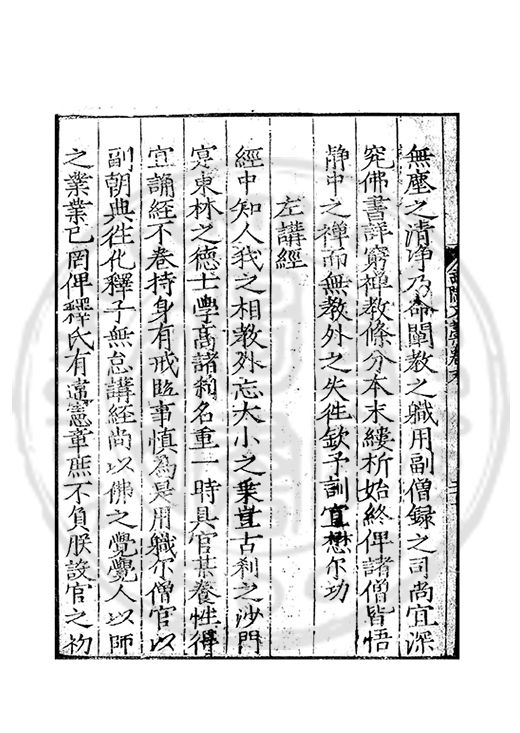 無塵之清净乃命闡教之職用副僧録之司尚宜深
究佛書詳窮禪教條分本末縷析始終俾諸僧皆悟
静中之禅而無教外之失徃欽予訓宜懋尔功
左講經
經中知人我之相教外忘大小之乗豈古刹之沙門
寔東林之德士學高諸釋名重一時具官某養性得
宜誦經不卷持身有戒臨事慎為是用職尔僧官以
副朝典徃化釋子無怠講經尚以佛之覺覺人以師
之業業已罔俾釋氏有違憲章庶不負朕設官之初